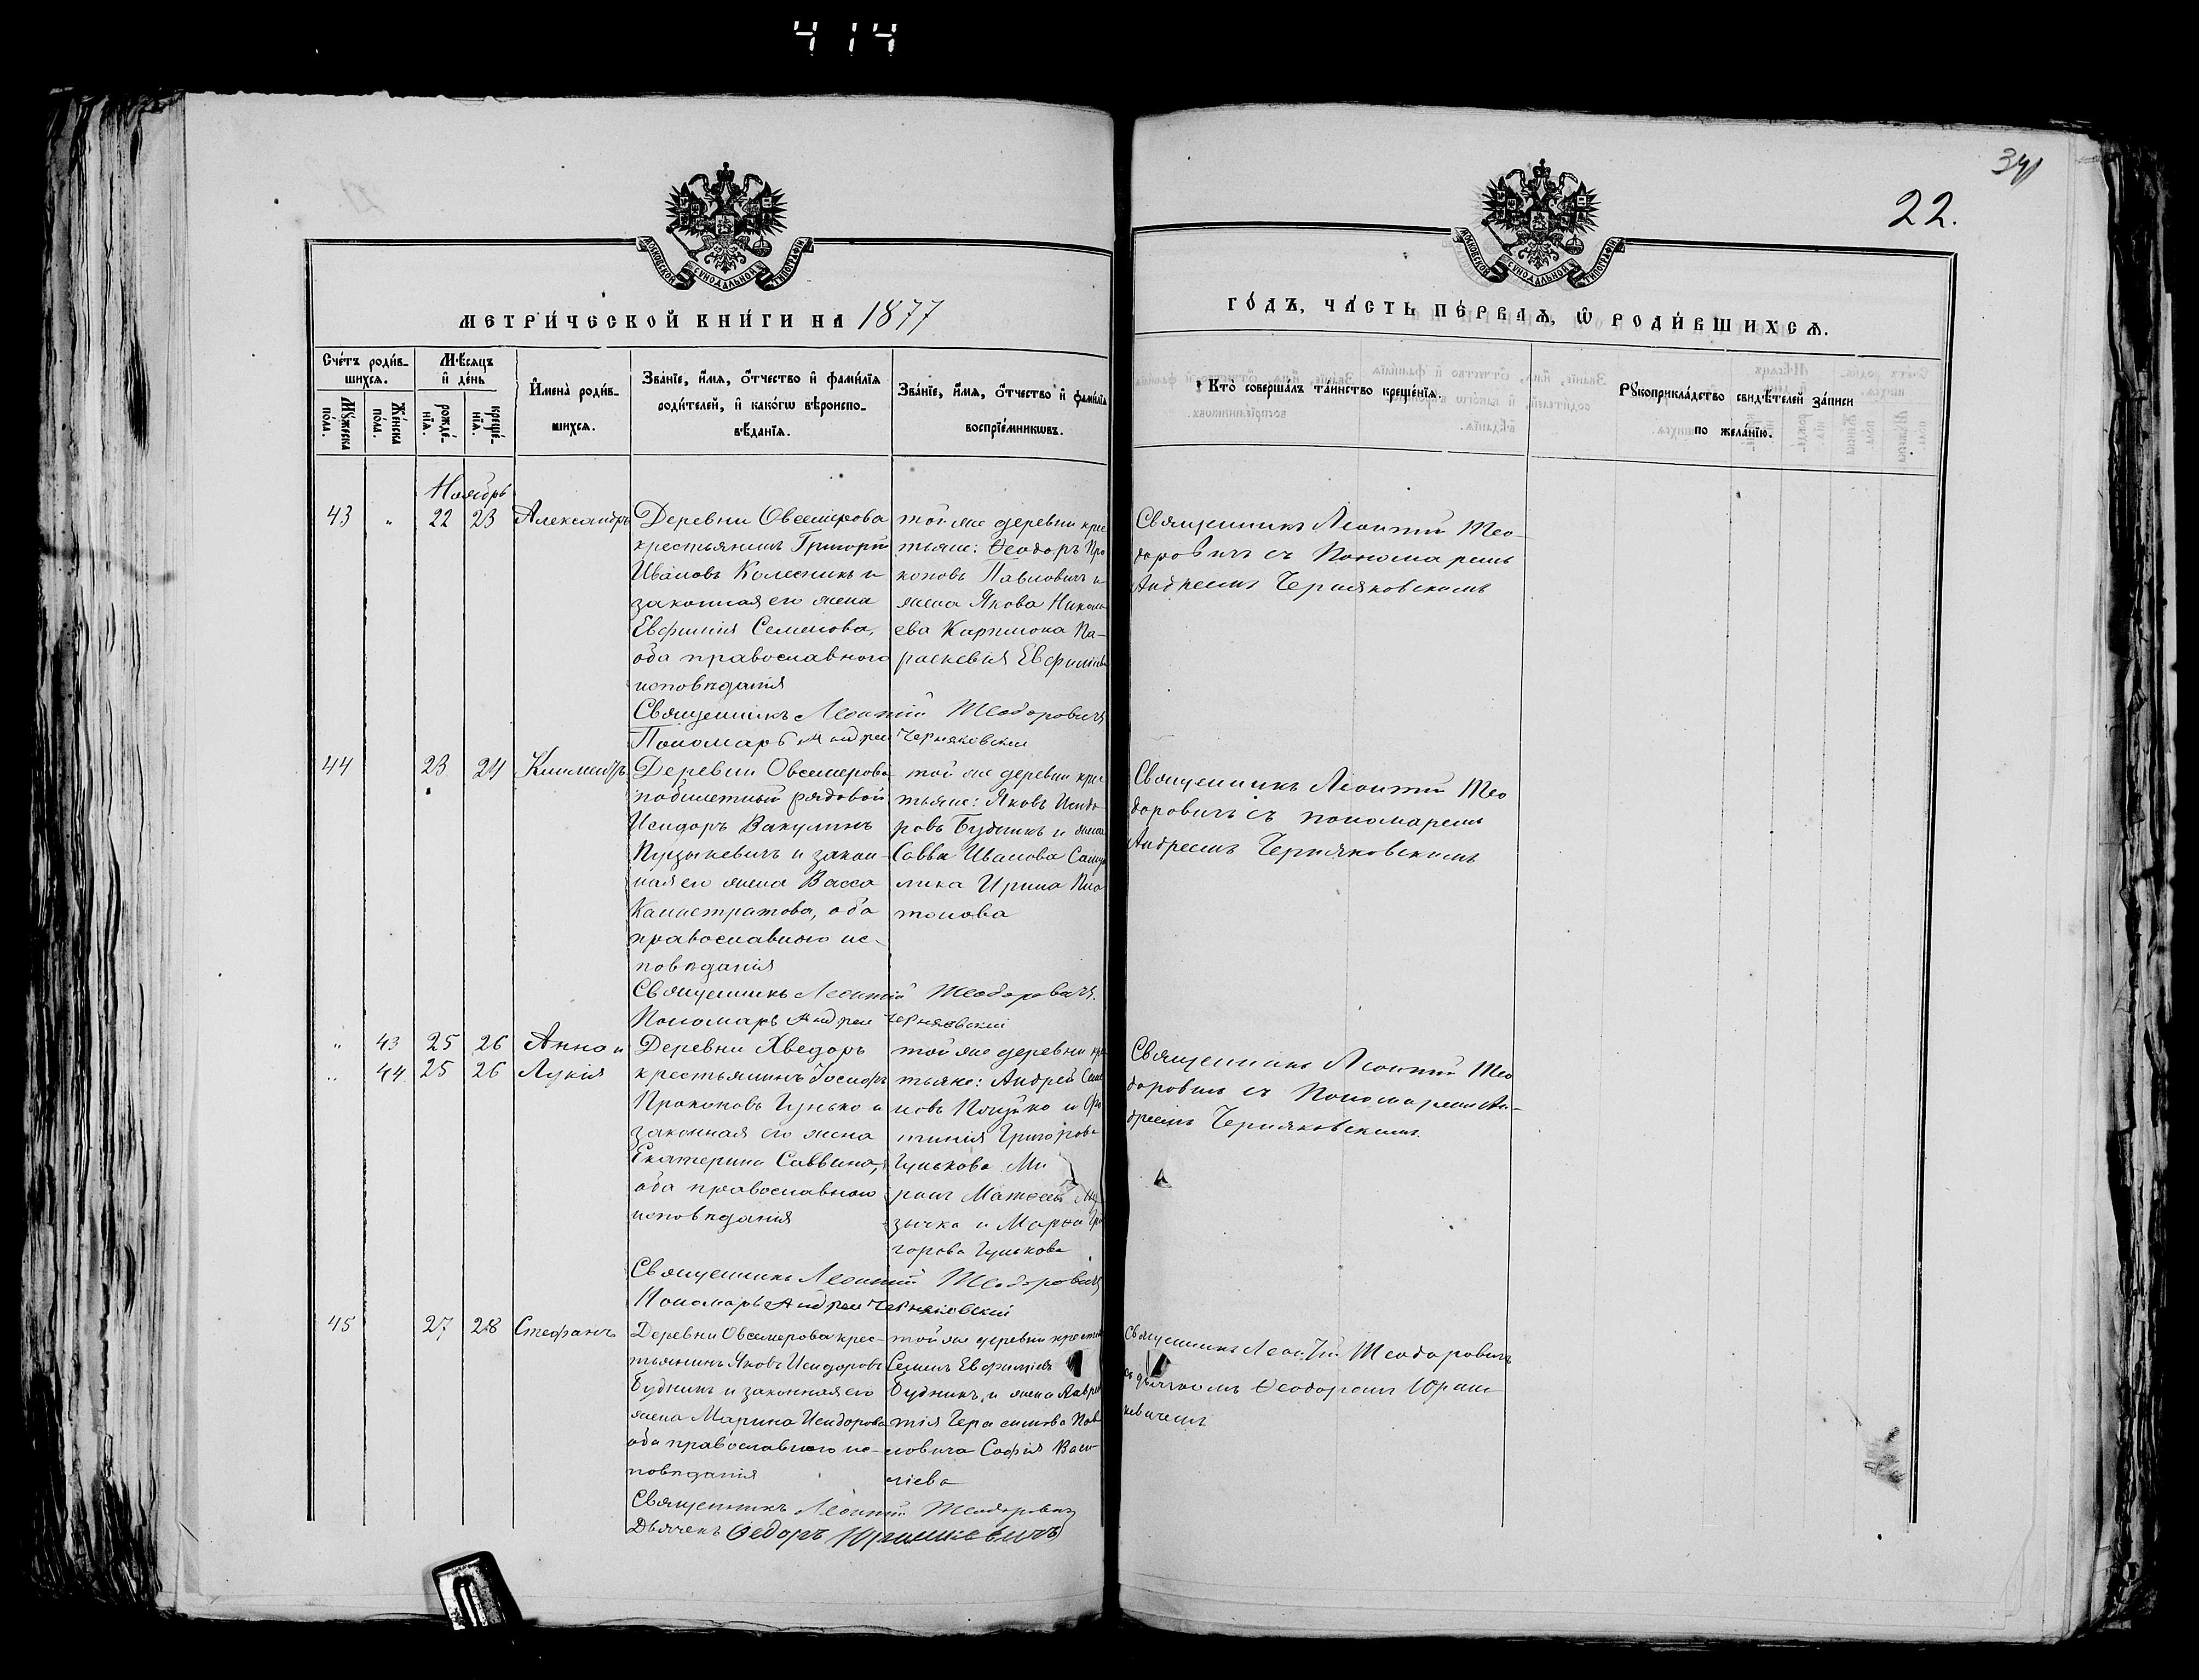 414
34
22.
МОСКОВСКОЙ СѴНОДАЛЬНОЙ ТИПОГРАФІИ
МОСКОВСКОЙ СѴНОДАЛЬНОЙ ТИПОГРАФІИ
МЕТРИ́ЧЕСКОЙ КНИ́ГИ НА 1877
ГО́ДЪ, ЧА́СТЬ ПЕ́РВАѦ, Ѡ РОДИ́ВШИХСѦ.
Сче́тъ роди́в-
шихсѧ.
Мꙋ́жеска по́ла.
Же́нска по́ла.
Мѣ́сѧцъ
и҆ де́нь
рожде́-нїѧ.
креще́-нїѧ.
И҆мена̀ роди́в-
шихсѧ.
Зва́нїе, и҆́мѧ, ѻ҆́тчество и҆ фами́лїѧ
роди́телей, и҆ како́гѡ вѣроиспо-
вѣ́данїѧ.
Зва́нїе, и҆́мѧ, ѻ҆́тчество и҆ фами́лїѧ
воспрїе́мникѡвъ.
Кто̀ соверша́лъ та́инство креще́нїѧ.
Рꙋкоприкла́дство свидѣ́телей за́писи
по жела́нїю.
Ноябрь
43 " 22 23 Александръ
Деревни Овсемерова
крестьянинъ Григорій
Ивановъ Колесникъ и
законная его жена
Евфимія Семенова,
оба православного
исповѣданія
той же деревни крес
тьяне: Ѳеодоръ Про
коповъ Павловичъ и
жена Якова Никола
ева Карпмока Па-
раскевія Евфиміева
Священникъ Леонтій Теодоровичъ
Пономарь Андрей Черняковскій
Священникъ Леонтій Тео-
доровичъ съ Пономаремъ
Андреемъ Черняковскимъ
44 23 24 Климентъ
Деревни Овсемерова
побилетный рядовой
Исидоръ Вакулинъ
Пузыкевичъ и закон-
ная его жена Васса
Калистратова, оба
православного ис-
повѣданія
той же деревни крес
тьяне: Яковъ Исидо
ровъ Будникъ и жена
Саввы Иванова
лика Ирина Пла
тонова
Священникъ Леонтій Теодоровичъ.
Пономарь Андрей Черняковскій
Священникъ Леонтій Тео
доровичъ съ пономаремъ
Андреемъ Черняковскимъ
" 43 25 26 Анна и
" 44 25 26 Лукія
Деревни Хведоръ
крестьянинъ Іосифъ
Прокоповъ Гунько и
законная его жена
Екатерина Саввина,
оба православного
исповѣданія
той же деревни крес
тьяне: Андрей Семе
новъ и Фо
тинія Григорова
Гунькова Ми
ронъ Матѳеевъ Му
зычка и Марѳа Гри
горова Гунькова
Священникъ Леонтій Теодоровичъ
Пономарь Андрей Черняковскій
Священникъ Леонтій Тео
доровичъ съ Пономаремъ Ан-
дреемъ Черняковскимъ.
45 27 28 Стефанъ
Деревни Овсемерова крес-
тьянинъ Яковъ Исидоровъ
Будникъ и законная его
жена Марина Исидорова
оба православного ис-
повѣданія
той же деревни крестья
Семенъ Евфиміевъ
Будникъ, и жена Лавре
тія Герасимова Пав
ловича Софія Васи-
ліева
Священникъ Леонтій Теодоровичъ
Дьячекъ Ѳедоръ Юрашкевичъ
Священникъ Леонтій Теодоровичъ
съ дьячкомъ Ѳеодоромъ Юраш-
кевичемъ